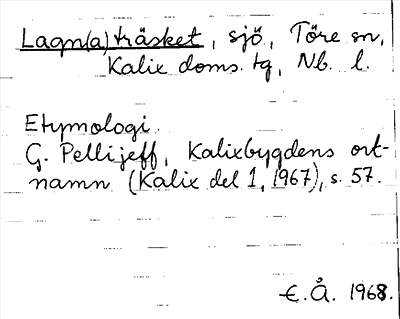 Lagn(a)träsket, sjö, Töre sn,
Kalix doms. tg, Nb. l.
Etymologi.
G. Pellijeff, Kalixbygdens ort-
namn (Kalix del 1, 1967), s. 57.
E.Å. 1968.